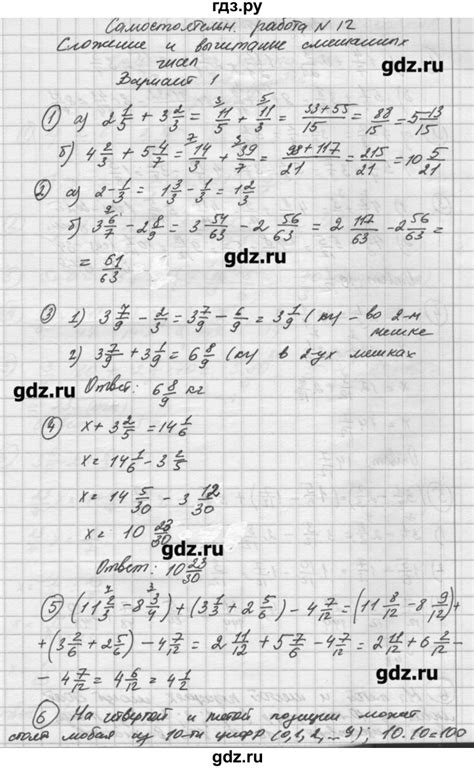 гдз.ру
Самостоятельн. работа N 12
Сложение и вычитание смешанных
чисел
gdz.ru
Вариант 1
① а) 2 1/5 + 3 2/3 = 11/5 + 11/3 = 33+55/15 = 88/15 = 5 13/15
б) 4 2/3 + 5 4/7 = 14/3 + 39/7 = 98+117/21 = 215/21 = 10 5/21
② а) 2 - 1/3 = 1 3/3 - 1/3 = 1 2/3
б) 3 6/7 - 2 8/9 = 3 54/63 - 2 56/63 = 2 117/63 - 2 56/63 =
= 61/63
gdz.ru
③ 1) 3 7/9 - 2/3 = 3 7/9 - 6/9 = 3 1/9 (кг) - во 2-м
мешке
2) 3 7/9 + 3 1/9 = 6 8/9 (кг) в 2-ух мешках
gdz.ru
Ответ: 6 8/9 кг
gdz.ru
④ x + 3 2/5 = 14 1/6
x = 14 1/6 - 3 2/5
x = 14 5/30 - 3 12/30
x = 10 23/30
gdz.ru
Ответ: 10 23/30
⑤ (11 2/3 - 8 3/4) + (3 1/3 + 2 5/6) - 4 7/12 = (11 8/12 - 8 9/12) +
+ (3 2/6 + 2 5/6) - 4 7/12 = 2 11/12 + 5 7/6 - 4 7/12 = 2 11/12 + 6 2/12 -
- 4 7/12 = 4 6/12 = 4 1/2
gdz.ru
⑥ На четвертой и пятой позиции может
стоять любая из 10-ти цифр (0,1,2, ... 9); 10·10=100